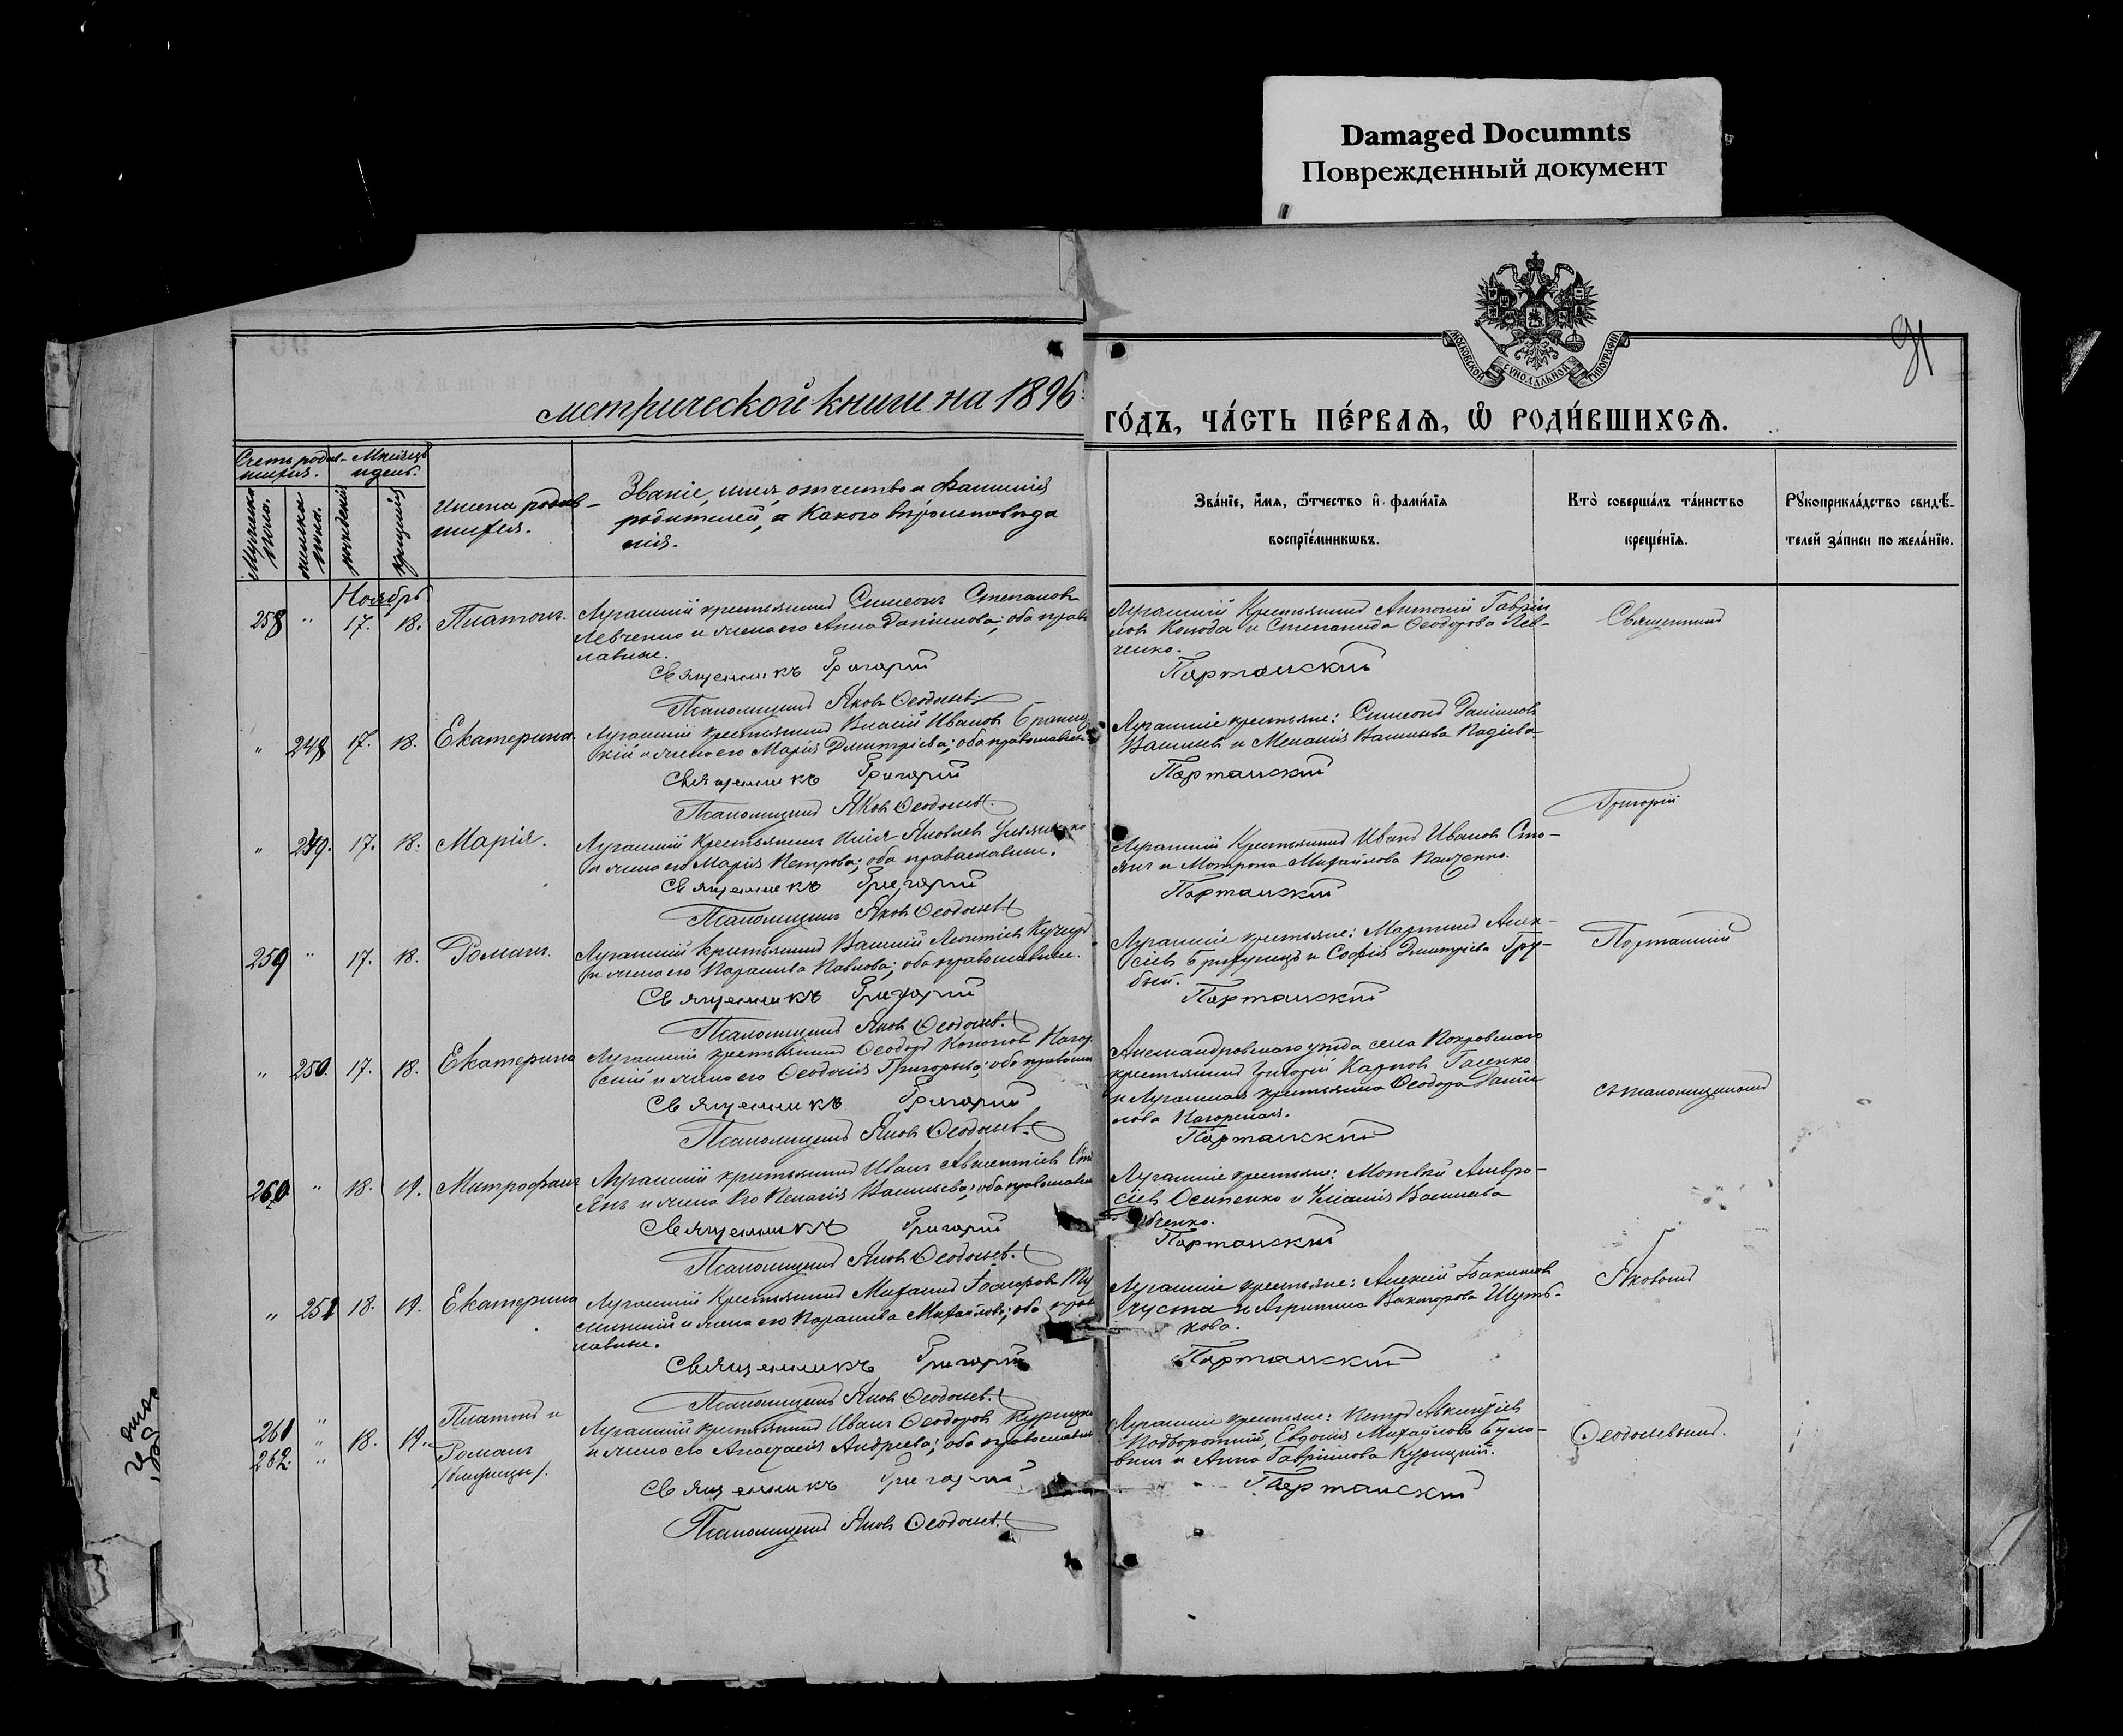 Damaged Documnts
Поврежденный документ
МОСКОВСКОЙ СѴНОДАЛЬНОЙ ТИПОГРАФІИ
91
метрической книги на 1896
го́дъ, ча́сть пе́рваѧ, ѡ҆ роди́вшихсѧ.
Счетъ родив- Мѣсяцъ
шихся. и день.
Мужеска пола.
женска пола.
рожденія
крещенія
Имена родив-
шихся.
Званіе, имя, отчество и фамилія
родителей, и какого вѣроисповѣда
нія.
Зва́нїе, и҆́мѧ, ѻ҆́тчество и҆ фами́лїѧ
воспрїе́мникѡвъ.
Кто̀ соверша́лъ та́инство
креще́нїѧ.
Рꙋкоприкла́дство свидѣ́-
телей за́писи по жела́нїю.
Ноябрь
258 " 17. 18. Платонъ.
Луганскій крестьянинъ Симеонъ Степановъ
Левченко и жена его Анна Даніилова; оба право
славные.
Священникъ Григорій
Псаломщикъ Яковъ Ѳеодосьев.
Луганскій Крестьянинъ Антоній Гаврiи
ловъ Колода и Степанида Ѳеодорова Лев-
ченко.
Портанскій
Священникъ
" 248 17. 18. Екатерина.
Луганскій крестьянинъ Власій Ивановъ
кій и жена его Марія Дмитріева; оба православные
Священникъ Григорій
Псаломщикъ Яковъ Ѳеодосьев.
Луганскіе крестьяне: Симеонъ Даніиловъ
и Меланія Васильева
Портанскій
Григорій
" 249. 17. 18. Марія.
Луганскій Крестьянинъ Илія Яковлевъ
и жена его Марія Петрова; оба православные.
Священникъ Григорій
Псаломщикъ Яковъ Ѳеодосьев
Луганскій Крестьянинъ Иванъ Ивановъ Сто-
янъ и Мотрона Михайлова Панченко.
Портанскій
259 " 17. 18. Романъ.
Луганскій крестьянинъ Василій Леонтіевъ
и жена его Параскева Павлова; оба православные.
Священникъ Григорій
Псаломщикъ Яковъ Ѳеодосьев.
Луганскіе крестьяне: Мартинъ Алек-
сіевъ и Софія Дмитріева Гру-
бый.
Портанскій
Портанскій
" 250. 17. 18. Екатерина
Луганскій крестьянинъ Ѳеодоръ Кононовъ Нагор
скій и жена его Ѳеодосія Григорьева; оба православн
Священникъ Григорій
Псаломщикъ Яковъ Ѳеодосьев.
Александровскаго уѣзда села Покровскаго
крестьянинъ Григорій Карповъ Гасенко
и Луганская крестьянка Ѳеодора Даніи
лова Нагорская.
Портанскій
съ псаломщикомъ
260 " 18. 19. Митрофанъ
Луганскій крестьянинъ Иванъ Авксентіевъ Сто
янъ и жена его Пелагія Васильева; оба православн
Священникъ Григорій
Псаломщикъ Яковъ Ѳеодосьев.
Луганскіе крестьяне: Матвѣй Амвро-
сіевъ Осипенко и Уліанія Васильева
Портанскій
" 251 18. 19. Екатерина
Луганскій Крестьянинъ Михаилъ
и жена его Параскева Михайлова; оба право
славные.
Священникъ Григорій
Псаломщикъ Яковъ Ѳеодосьев.
Луганскіе крестьяне: Алексій Іоакимовъ
Чуста и Агрипина Викторова Шуть-
кова.
Портанскій
Яковомъ
261 " Платонъ и
262. " 18. 19. Романъ
/близнецы/.
Луганскій крестьянинъ Иванъ Ѳеодоровъ Курицкій
и жена его Анастасія Андреева; оба православны
Священникъ Григорій
Псаломщикъ Яковъ Ѳеодосьев.
Луганскіе крестьяне: Петръ Авксентіевъ
Подворотній, Евдокія Михайлова Була-
винъ и Анна Гавриилова Курицкій.
Портанскій
Ѳеодосьевымъ.